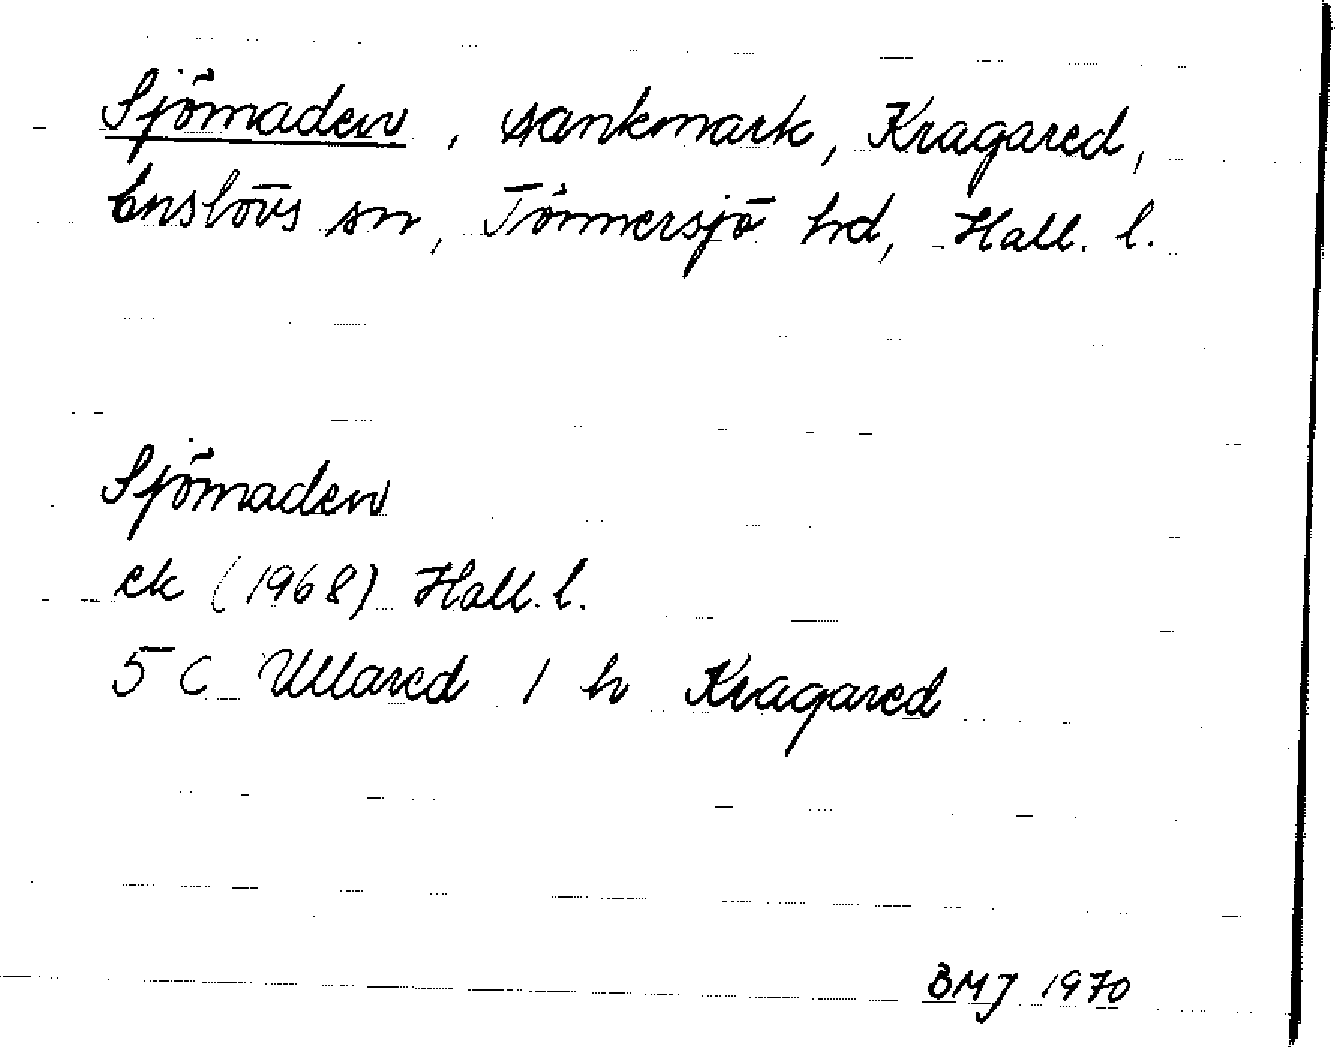 Sjömaden, sankmark, Kragared,
Enslövs sn, Tönnersjö hd, Hall. l.
Sjömaden
ek (1968) Hall. l.
5 C Ullared 1 h Kragared
BMJ 1970